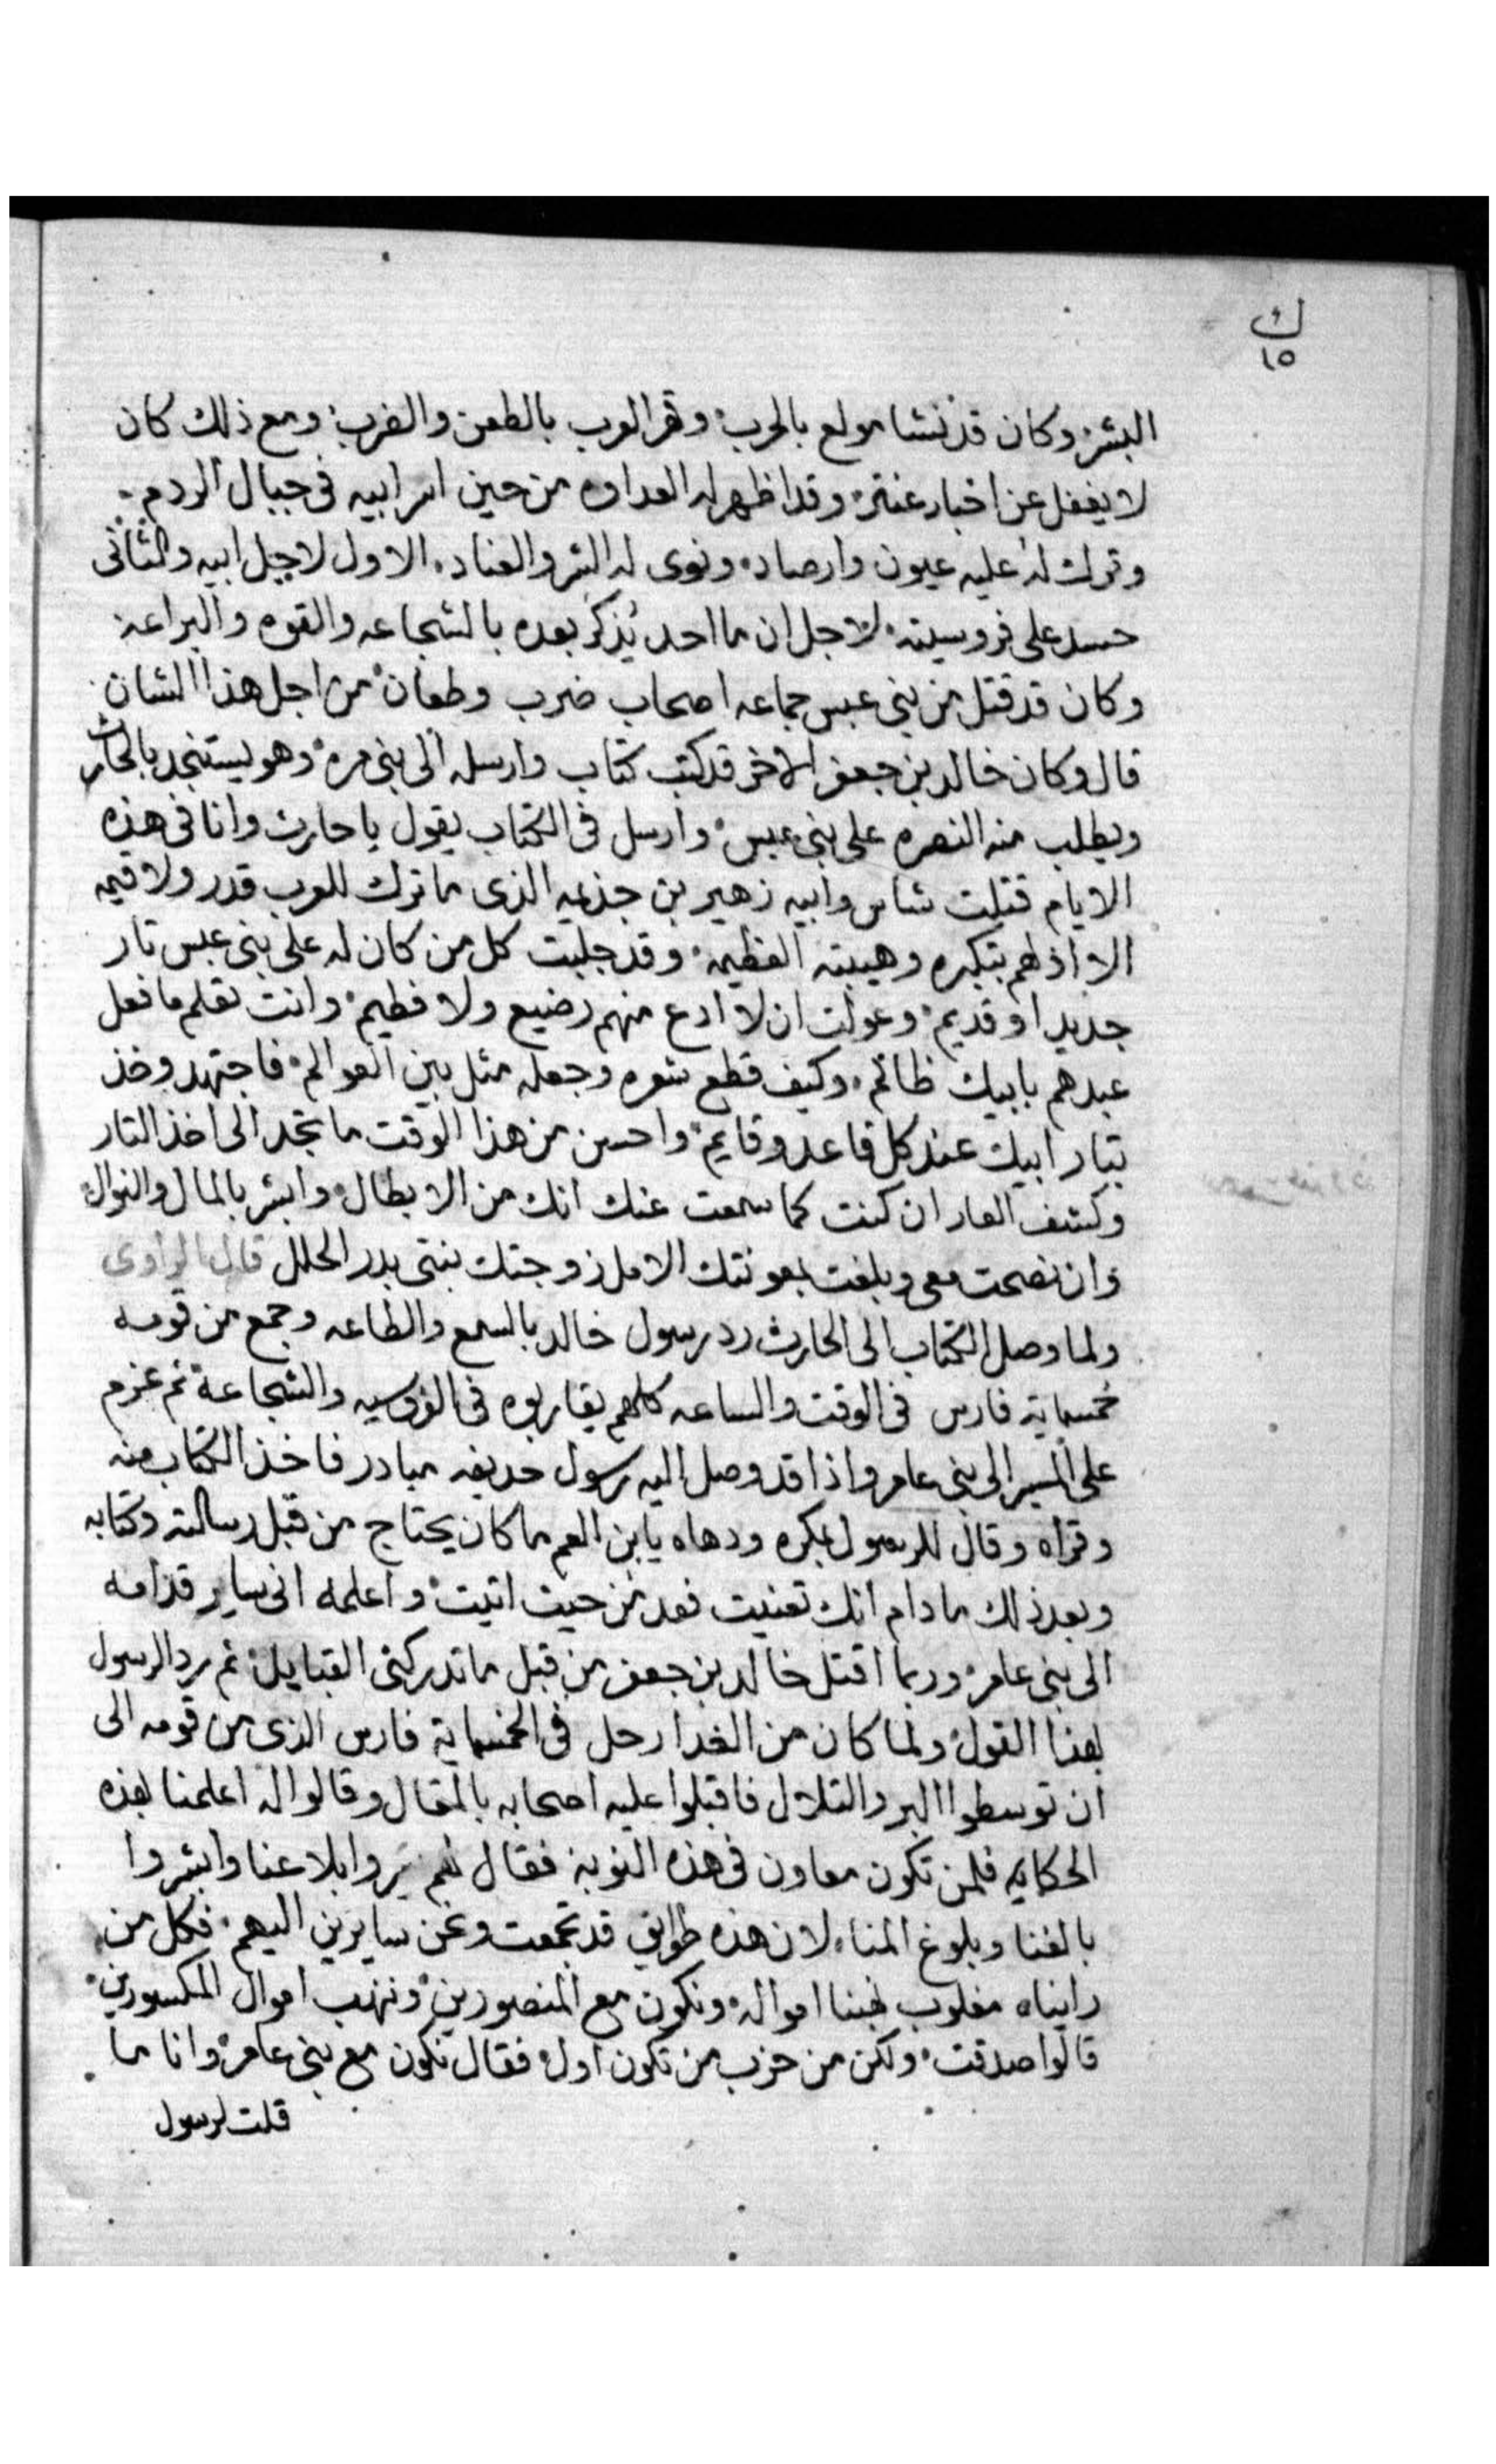 ك
١٥
البشر وكان قد نشا مولع بالحرب وقهر العرب بالطعن والضرب ومع ذلك كان
لا يغفل عن اخبار عنتر وقد اظهر له العداوه من حين اسر ابيه فى جبال الردم
وترك له عليه عيون وارصاد ونوى له الشر والعناد الاول لاجل ابيه والثانى
حسد على فروسيته لاجل ان ما احد يُذكر بعده بالشجاعه والقوه والبراعه
وكان قد قتل من بنى عبس جماعه اصحاب ضرب وطعان من اجل هذا الشان
قال وكان خالد بن جعفر الاخر قد كتب كتاب وارسله الى بنى مره وهو يستنجد بالحارث
ويطلب منه النصره على بنى عبس وارسل فى الكتاب يقول يا حارث وانا فى هذه
الايام قتلت شاس وابيه زهير بن جذيمه الذى ما ترك للعرب قدر ولا قيمه
الا اذلهم بتكبره وهيبته العظيمه وقد جلبت كل من كان له على بنى عبس تار
جديد او قديم وعولت ان لا ادع منهم رضيع ولا فطيم وانت تعلم ما فعل
عبدهم بابيك ظالم وكيف قطع شعره وجعله مثل بين العوالم فاجتهد وخذ
بتار ابيك عند كل قاعد وقايم واحسن من هذا الوقت ما تجد الى اخذ التار
وكشف العار ان كنت كما سمعت عنك انك من الابطال وابشر بالمال والنوال
وان نصحت معى وبلغت بمعونتك الامل زوجتك بنتى بدر الحلل قال الراوى
ولما وصل الكتاب الى الحارث رد رسول خالد بالسمع والطاعه وجمع من قومه
خمسماية فارس فى الوقت والساعه كلهم يقاربوه فى الفروسيه والشجاعة ثم عزم
على المسير الى بنى عامر واذا قد وصل اليه رسول حديفه مبادر فاخذ الكتاب منه
وقراه وقال للرسول بمكره ودهاه يابن العم ما كان يحتاج من قبل رسالته وكتابه
وبعد ذلك ما دام انك تعنيت فعد من حيث اتيت واعلمه انى ساير قدامه
الى بنى عامر وربما اقتل خالد بن جعفر من قبل ما تدركنى القبايل ثم رد الرسول
بهذا القول ولما كان من الغدا رحل فى الخمسماية فارس الذى من قومه الى
ان توسطوا البر والتلال فاقبلوا عليه اصحابه بالمقال وقالوا له اعلمنا بهذه
الحكايه فلمن تكون معاون فى هذه النوبة فقال لهم سيروا بلا عنا وابشروا
بالغنا وبلوغ المنا لان هذه طوايق قد تجمعت ونحن سايرين اليهم فكل من
رايناه مغلوب نهبنا امواله ونكون مع المنصورين وننهب اموال المكسورين
قالوا صدقت ولكن من حزب من تكون اول فقال نكون مع بنى عامر وانا ما
قلت لرسول